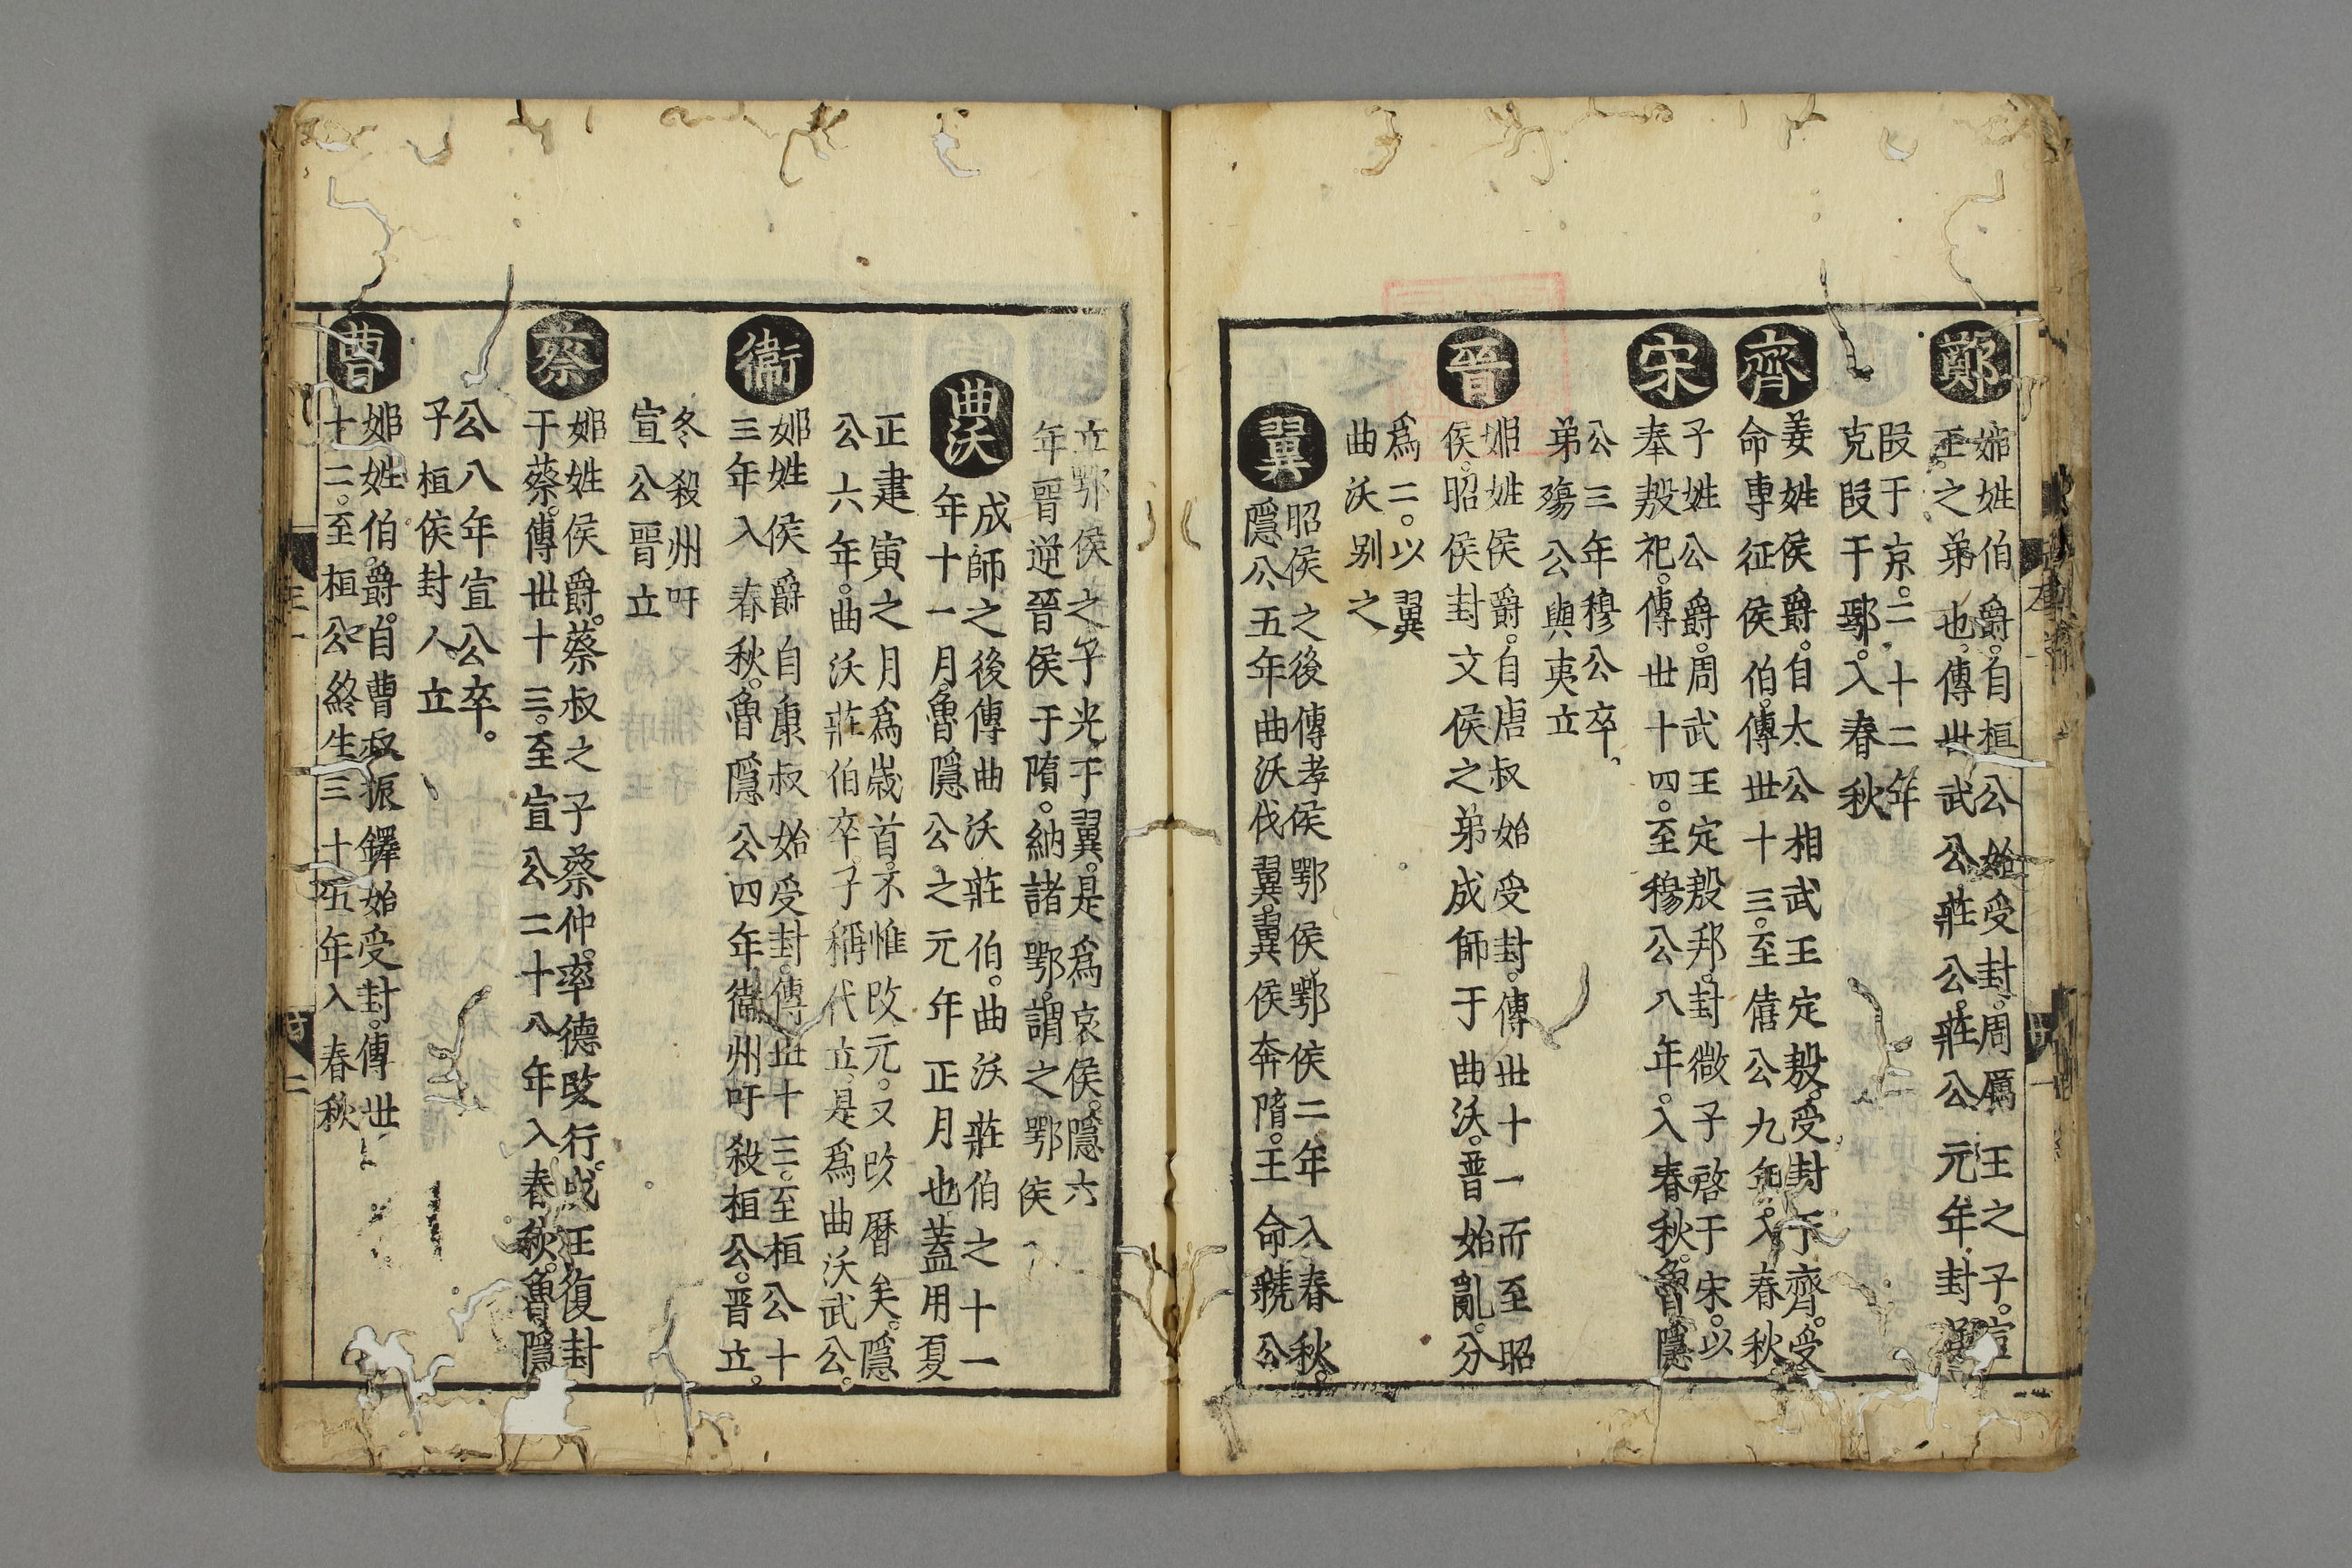 鄭
姬姓伯爵。自桓公始受封。周厲王之子。宣
王之弟也。傳世武公莊公。莊公元年封
段于京。二十二年
克段于鄢。入春秋
齊
姜姓侯爵。自太公相武王定殷。受封于齊。受
命專征侯伯。傳世十三。至僖公九年。入春秋
宋
子姓公爵。周武王定殷邦。封微子啓于宋。以
奉殷祀。傳世十四。至穆公八年。入春秋。魯隱
公三年穆公卒。
弟殤公與夷立
晉
姬姓侯爵。自唐叔始受封。傳世十一而至昭
侯。昭侯封文侯之弟成師于曲沃。晉始亂。分
爲二。以翼
曲沃別之
翼
昭侯之後傳孝侯鄂侯鄂侯二年入春秋。
隱公五年曲沃伐翼。翼侯奔隋。王命虢公
立鄂侯之子光于翼。是爲哀侯。隱六
年晉逆晉侯于隋。納諸鄂。謂之鄂侯
曲沃
成師之後傳曲沃莊伯。曲沃莊伯之十一
年十一月。魯隱公之元年正月也蓋用夏
正建寅之月爲歲首。不惟改元。又改曆矣。隱
公六年。曲沃莊伯卒。子稱代立。是爲曲沃武公。
衞
姬姓侯爵自康叔始受封。傳世十三。至桓公十
三年入春秋。魯隱公四年衞州吁殺桓公。晉立。
冬殺州吁
宣公晉立
蔡
姬姓侯爵。蔡叔之子蔡仲。率德改行。成王復封
于蔡。傳世十三。至宣公二十八年入春秋。魯隱
公八年宣公卒。
子桓侯封人立
曹
姬姓伯爵。自曹叔振鐸始受封。傳世
十二。至桓公終生三十五年入春秋